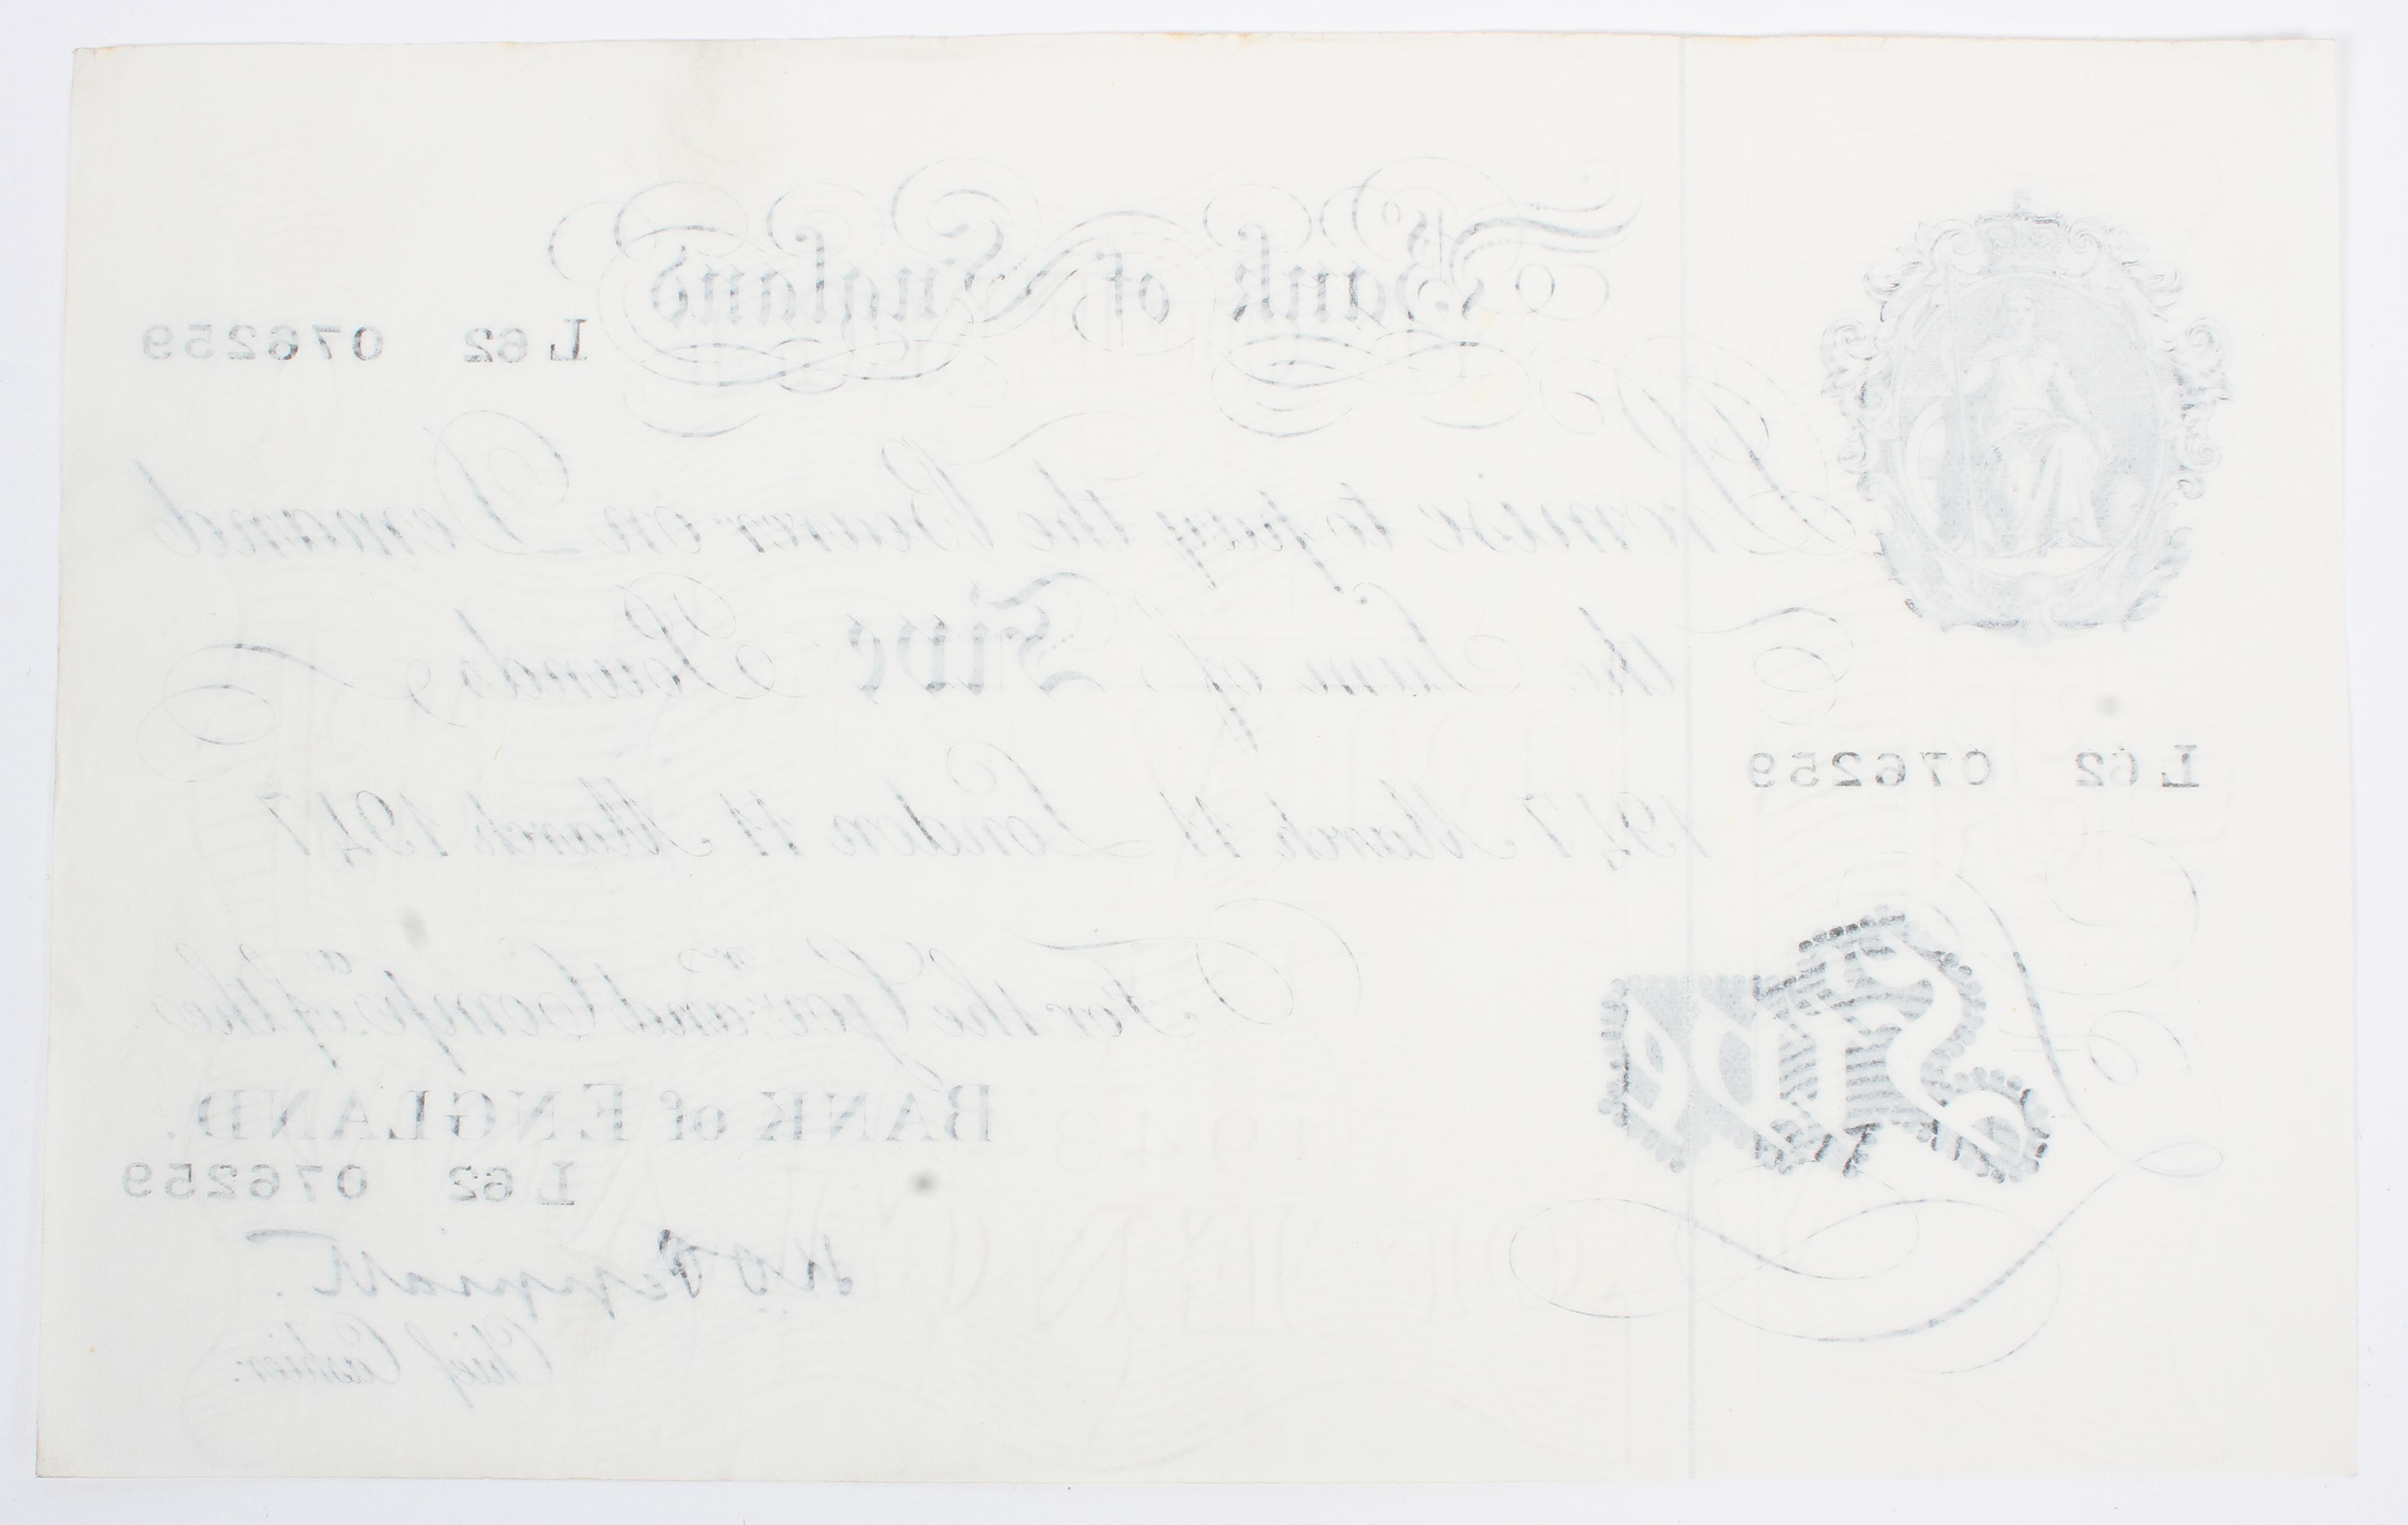 Bank of England
L 62 076259
Promise to pay the Bearer on Demand
the Sum of Five Pounds
L 62 076259
1947 March 11 London 11 March 1947
For the Gov.rs and Comp.a of the
BANK of ENGLAND.
Five
L 62 076259
K O Peppiatt.
Chief Cashier.